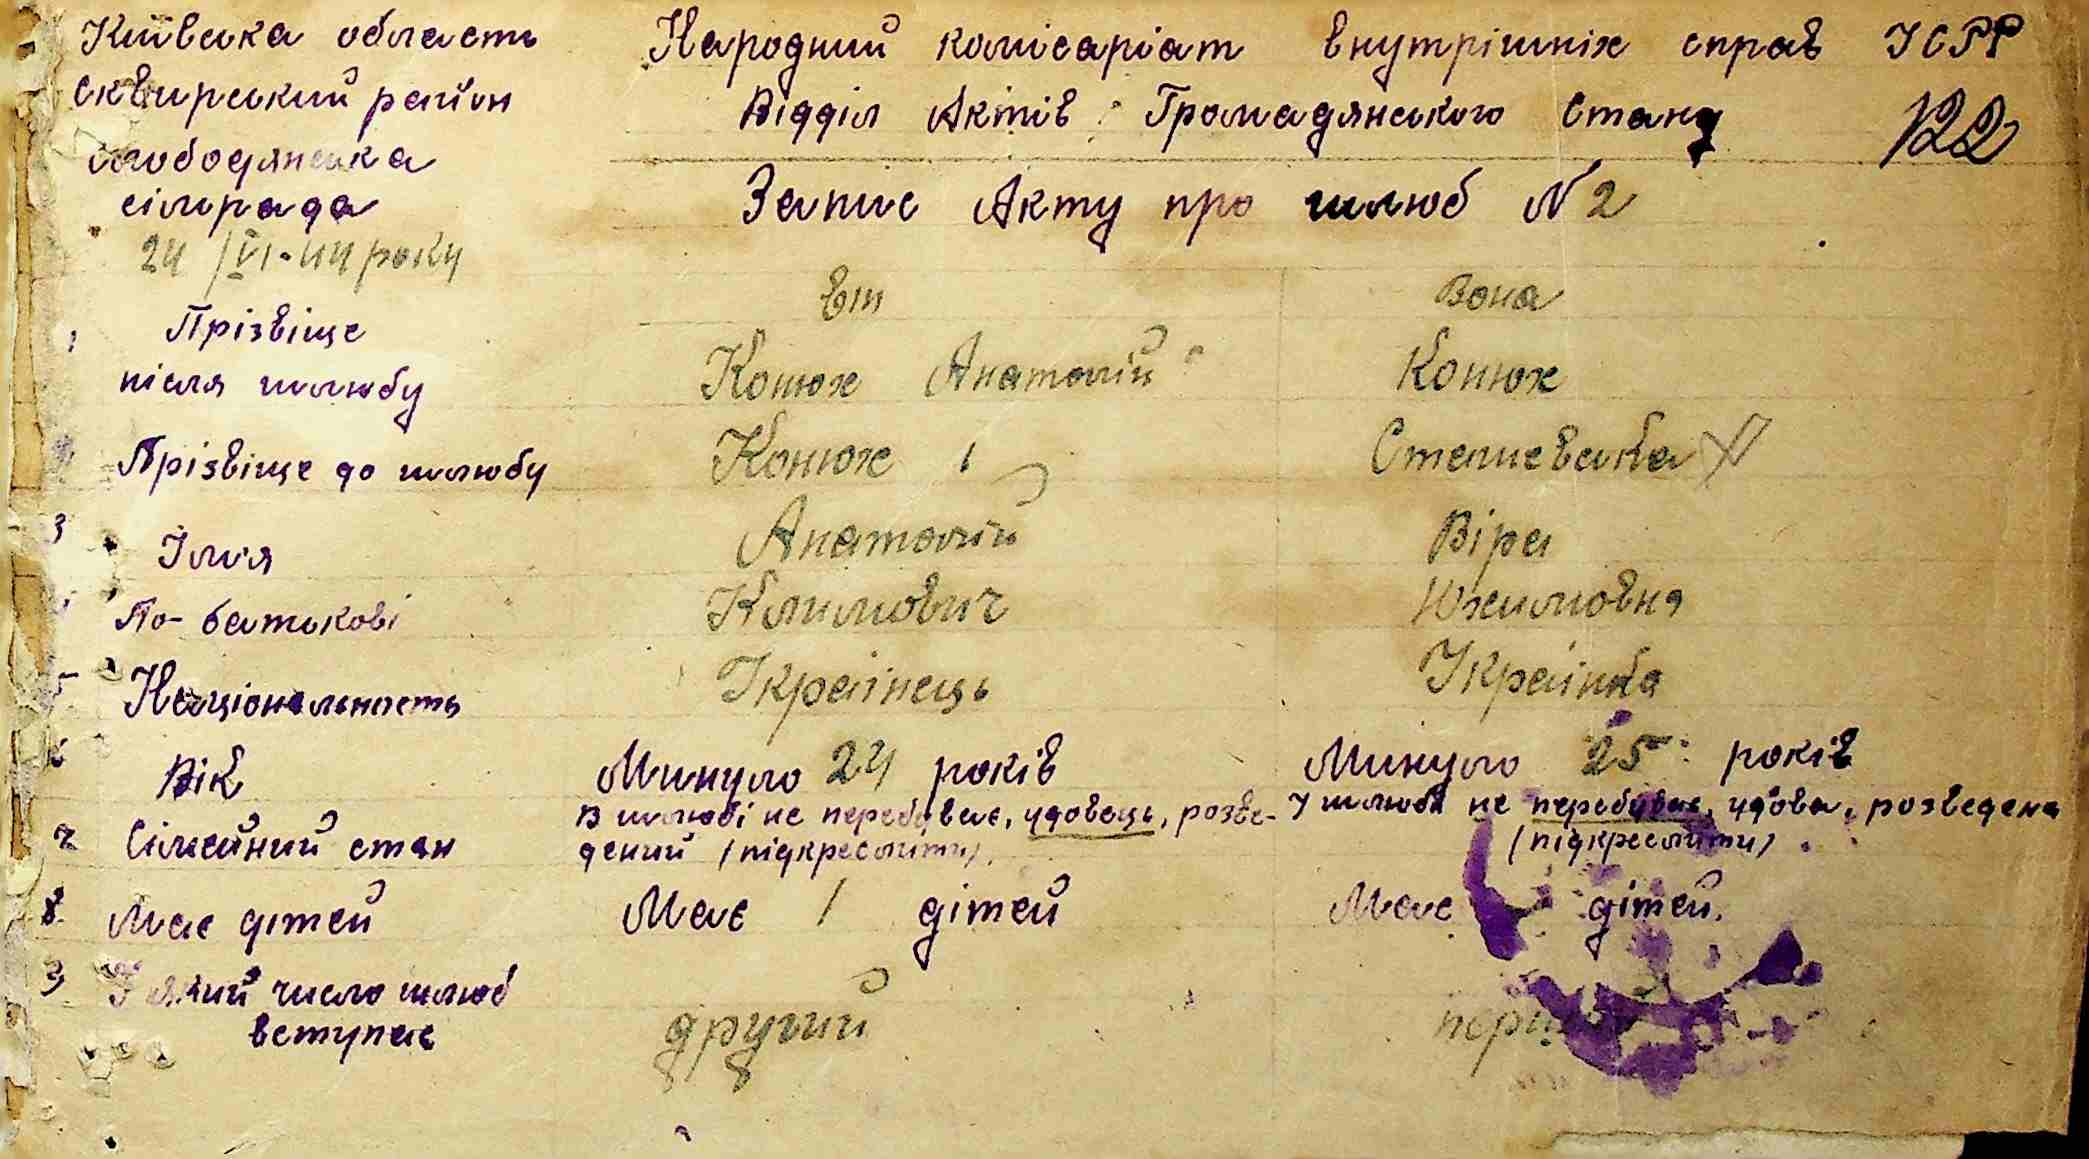 Київська область
Сквирський район
Слободянська
сільрада
24/VI-44 року
Народний комісаріат внутрішніх справ УСРР
Відділ Актів Громадянського Стану
122
Запис Акту про шлюб N 2
Він Вона
1 Прізвіще
після шлюбу Конюх Анатолій Конюх
Прізвіще до шлюбу Конюх Сташевська
3 Імʼя Анатолій Віра
По-батькові Климович Юхимовна
5 Національность Українець Українка
6 Вік Минуло 24 років Минуло 25 років
7 Сімейний стан В шлюбі не перебуває, удовець, розве-
дений (підкреслити). У шлюбі не перебуває, удова, розведена
(підкреслити)
8 Має дітей Має 1 дітей Має дітей.
9 У який число шлюб
вступає другий